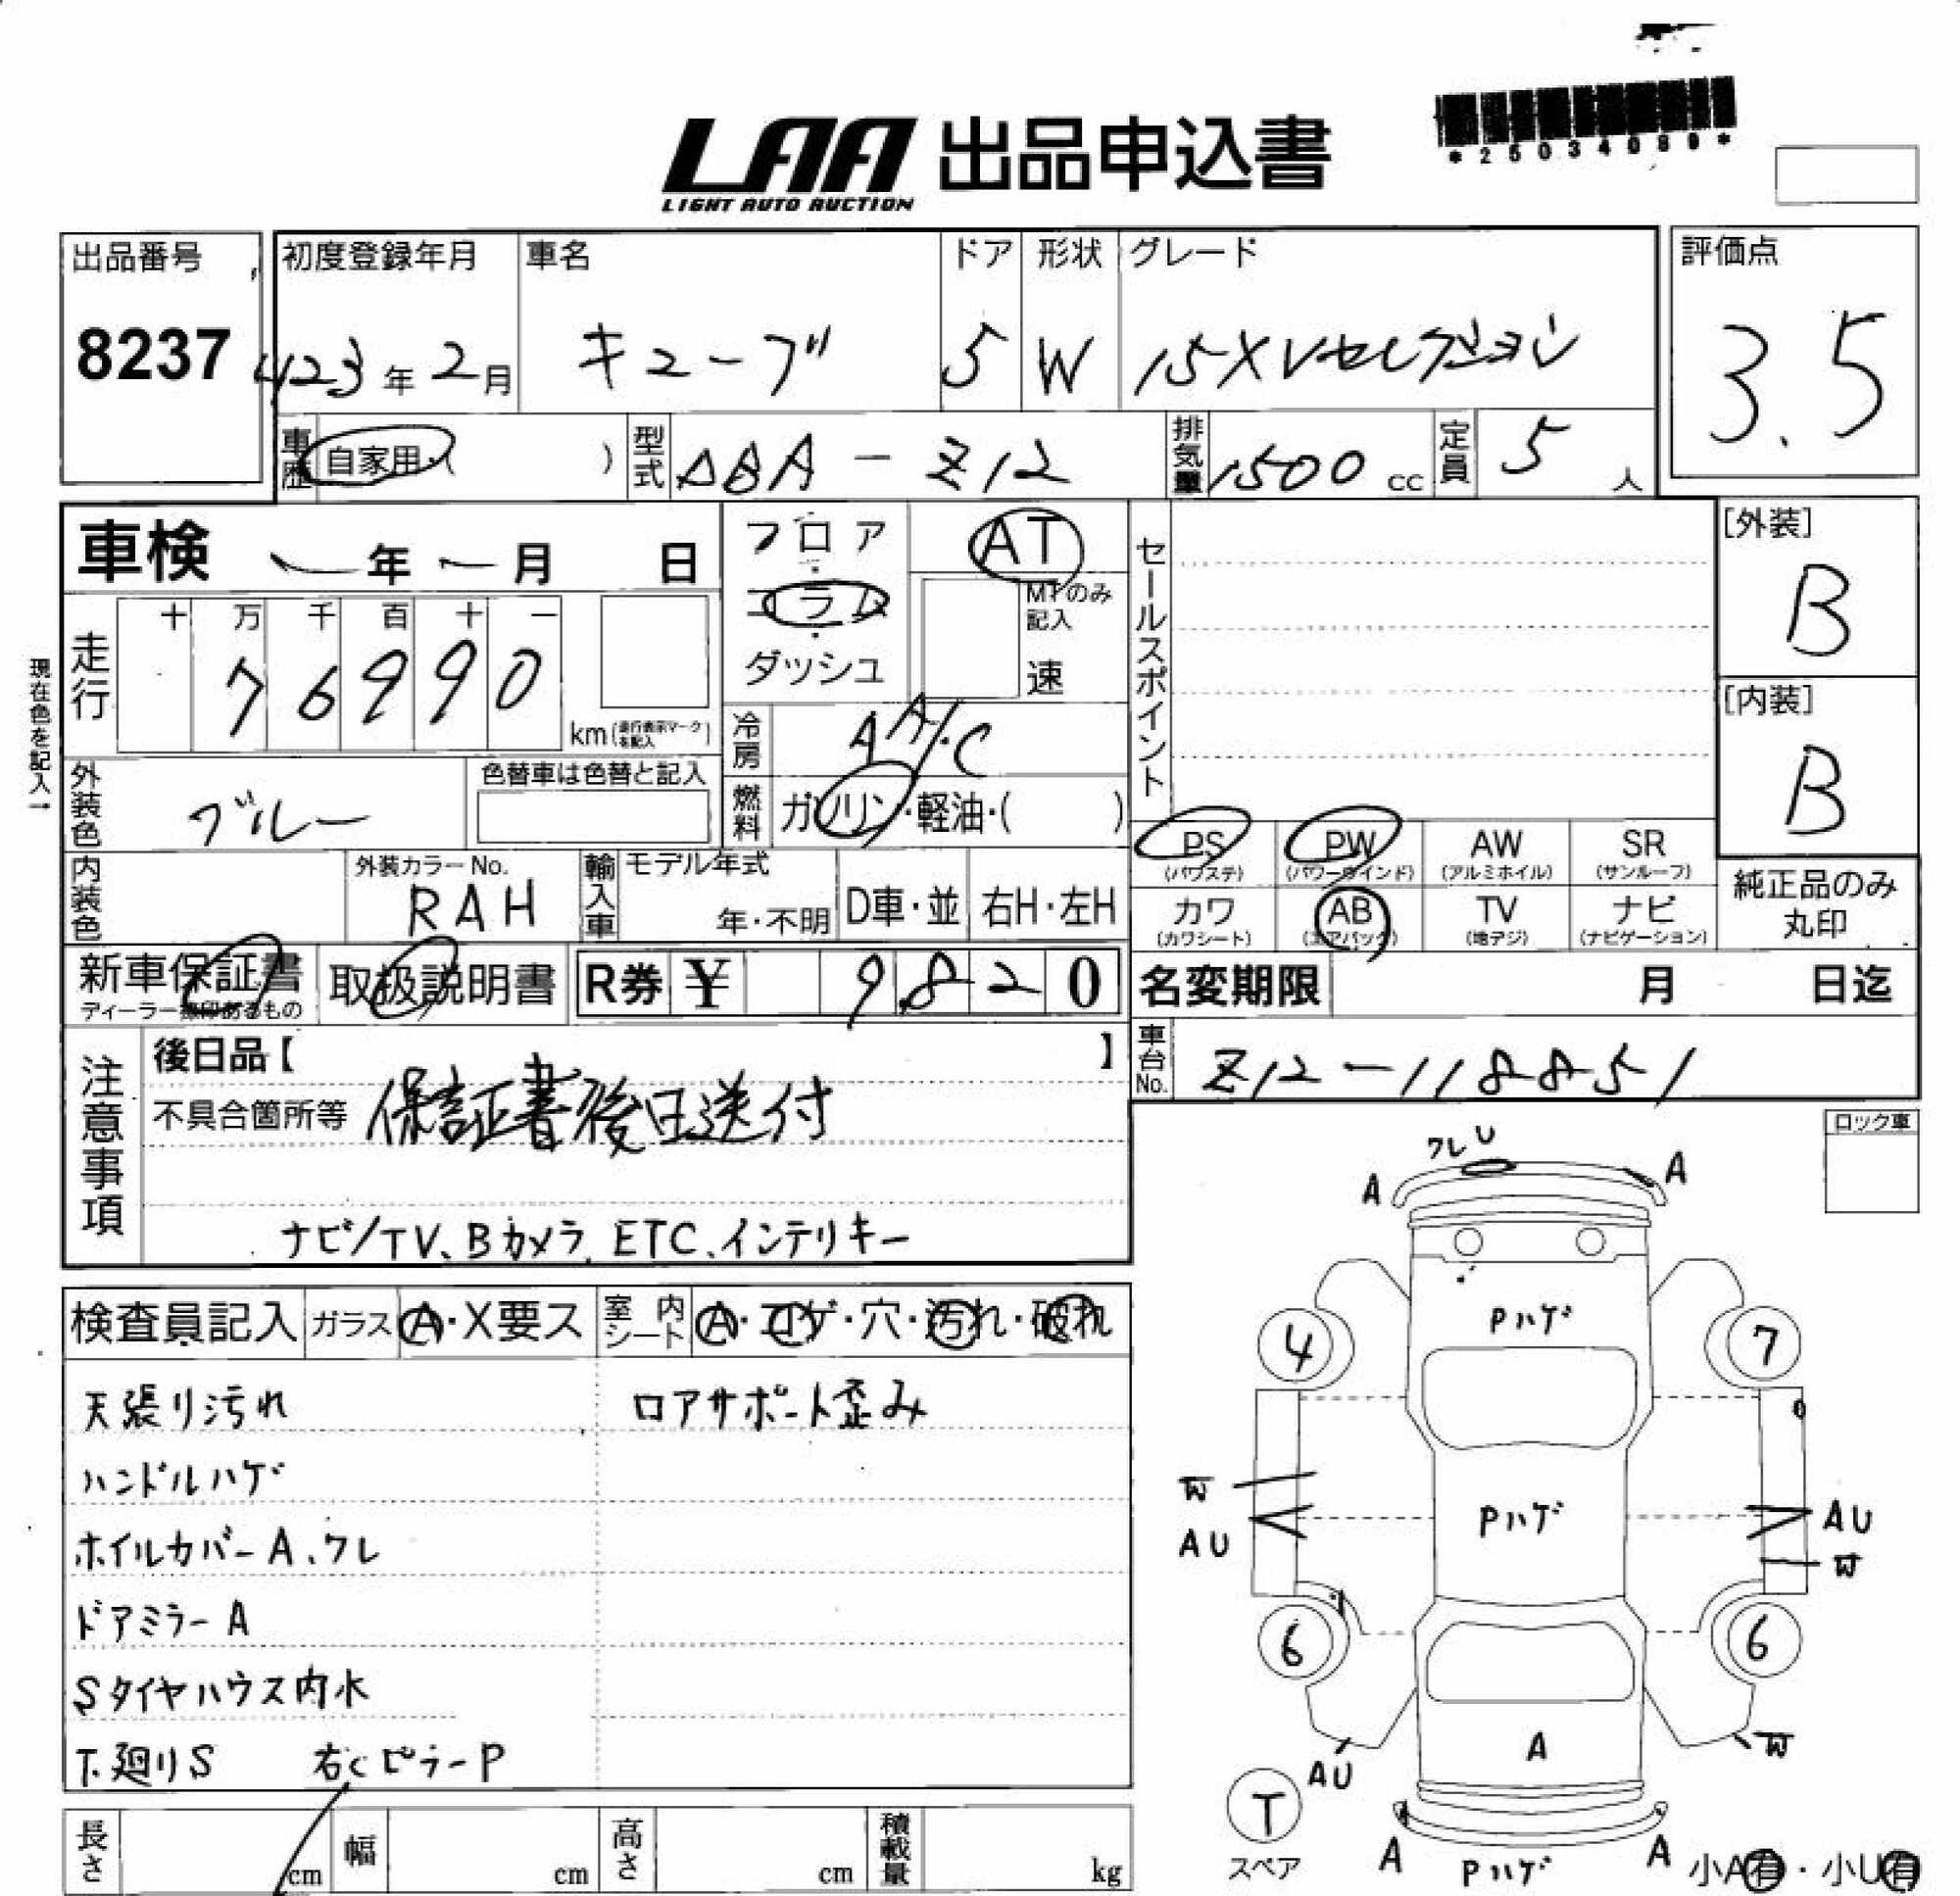 *25034089*
LAA 出品申込書
LIGHT AUTO AUCTION
出品番号
8237
初度登録年月
423年2月
車名
キューブ
ドア
5
形状
W
グレード
15XVセレクション
評価点
3.5
車歴
自家用・( )
型式
DBA-Z12
排気量
1500cc
定員
5人
車検 年 月 日
フロア・コラム・ダッシュ
AT
MTのみ記入
速
セールスポイント
[外装]
B
[内装]
B
現在色を記入→
走行
十万千百十一
76990
km(走行表示マークを記入)
冷房
AA/C
外装色
ブルー
色替車は色替と記入
燃料
ガソリン・軽油・( )
内装色
外装カラーNo.
RAH
輸入車
モデル年式
年・不明
D車・並
右H・左H
PS
(パワステ)
PW
(パワーウインド)
AW
(アルミホイル)
SR
(サンルーフ)
カワ
(カワシート)
AB
(エアバッグ)
TV
(地デジ)
ナビ
(ナビゲーション)
純正品のみ
丸印
新車保証書
ディーラー無印あるもの
取扱説明書
R券 ¥ 9820
名変期限 月 日迄
注意事項
後日品【 】
不具合箇所等 保証書後日送付
ナビ/TV、Bカメラ、ETC、インテリキー
車台No.
Z12-118851
ロック車
検査員記入
ガラス
A・X要ス
室内シート
A・コゲ・穴・汚れ・破れ
天張り汚れ
ロアサポート歪み
ハンドルハゲ
ホイルカバーA、ワレ
ドアミラーA
Sタイヤハウス内水
下廻りS 右Cピラ-P
長さ cm
幅 cm
高さ cm
積載量 kg
ワレ U
A
A
Pハゲ
4
7
W
AU
Pハゲ
AU
W
6
6
A
AU
W
T
スペア
A
Pハゲ
A
小A有・小U有